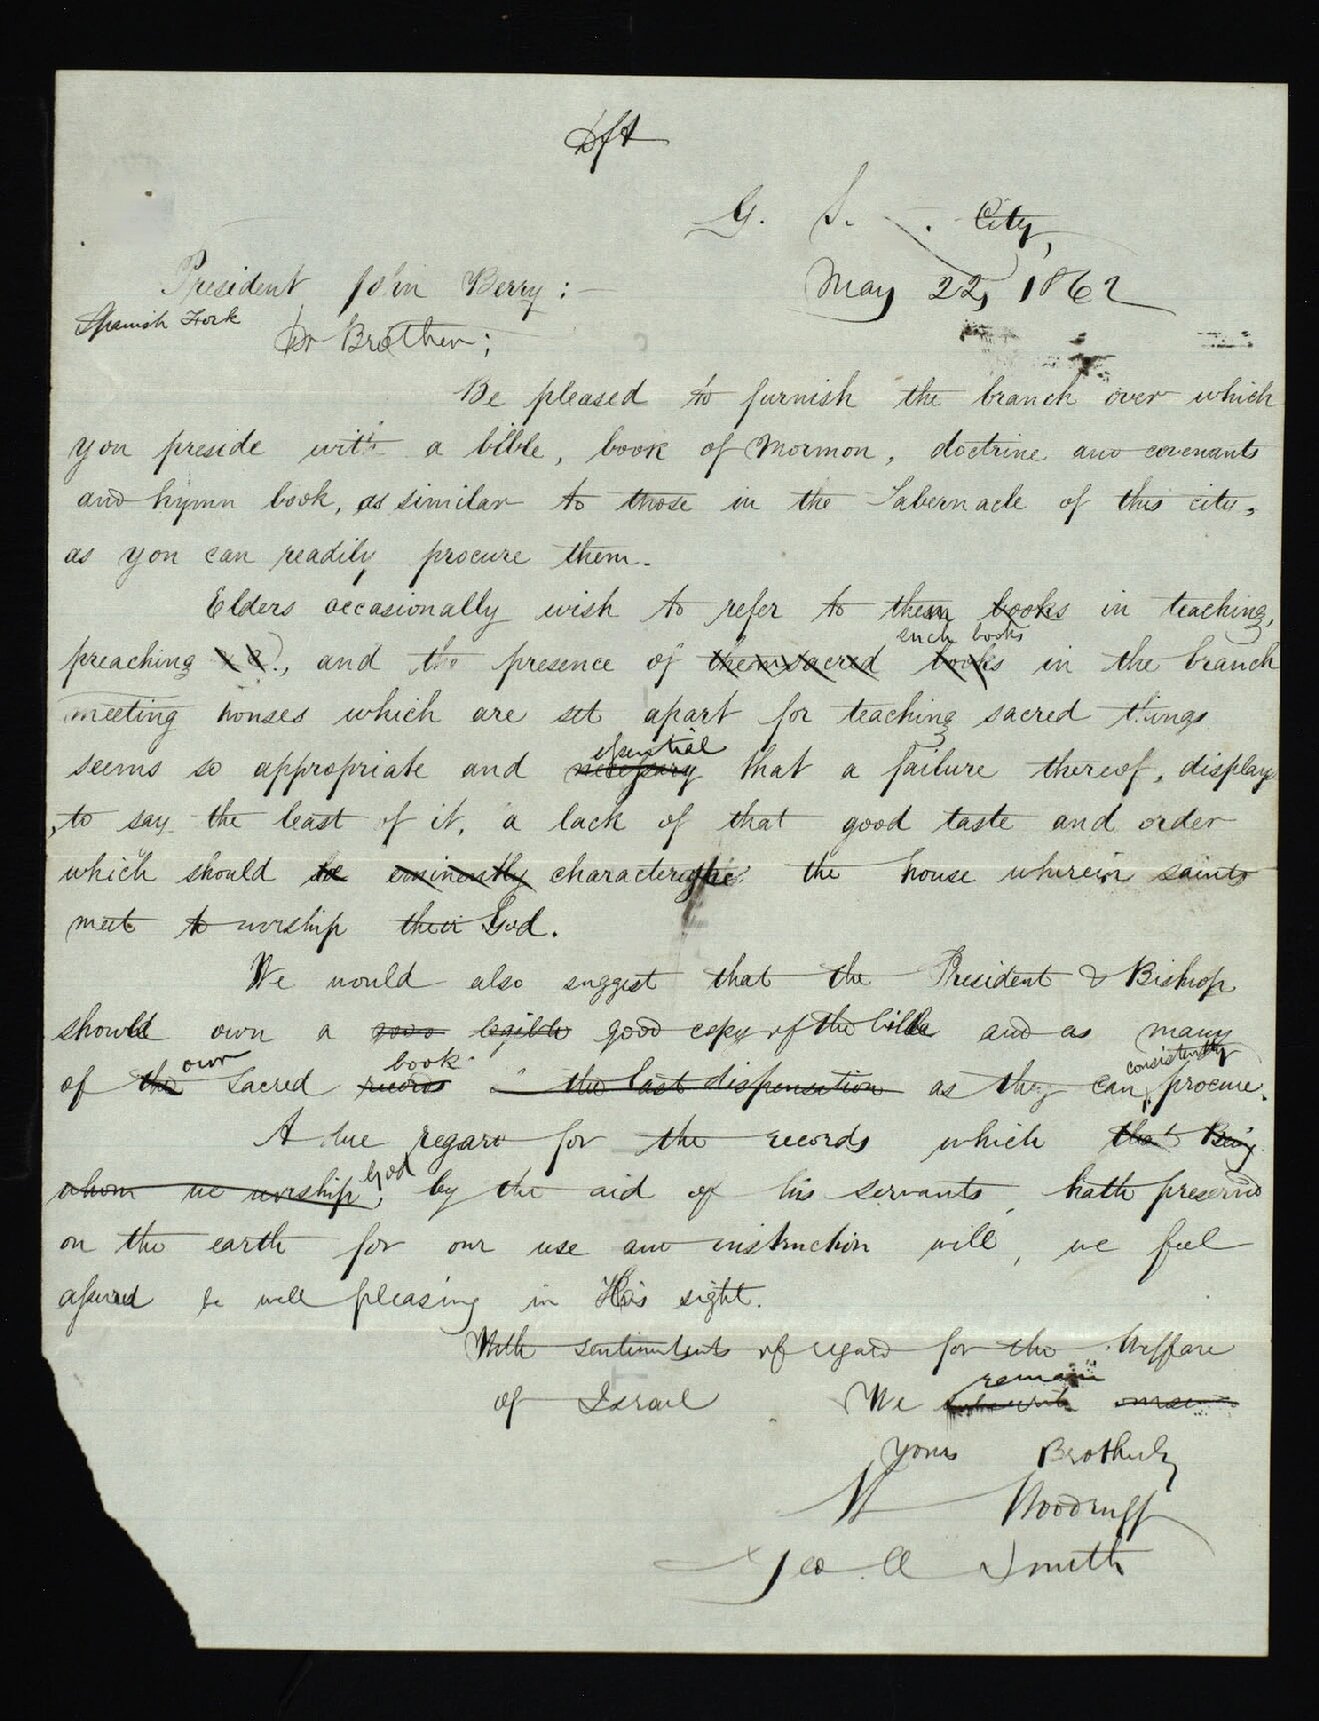 Dft
G. S. . City,
May 22, 1862
President John Berry :—
Spanish Fork
Dr Brother;
Be pleased to furnish the branch over which
you preside with a bible, book of Mormon, doctrine and covenants
and hymn book, as similar to those in the Tabernacle of this city,
as you can readily procure them.
Elders occasionally wish to refer to them books in teaching,
such books
preaching &c., and the presence of them sacred books in the branch
meeting houses which are set apart for teaching sacred things
essential
seems so appropriate and necessary that a failure thereof, display
, to say the least of it, a lack of that good taste and order
which should be eminently characterize the house wherein saints
meet to worship their God.
We would also suggest that the President & Bishop
should own a good legible good copy of the bible and as many
own book consistently
of the Sacred records the last dispensation as they can procure.
A due regard for the records which that Being
God
whom we worship, by the aid of his servants, hath preserved
on the earth for our use and instruction will, we feel
assured be well pleasing in His sight.
With sentiments of regard for the Welfare
remain
of Israel We
yours Brotherly
W Woodruff
Geo A Smith